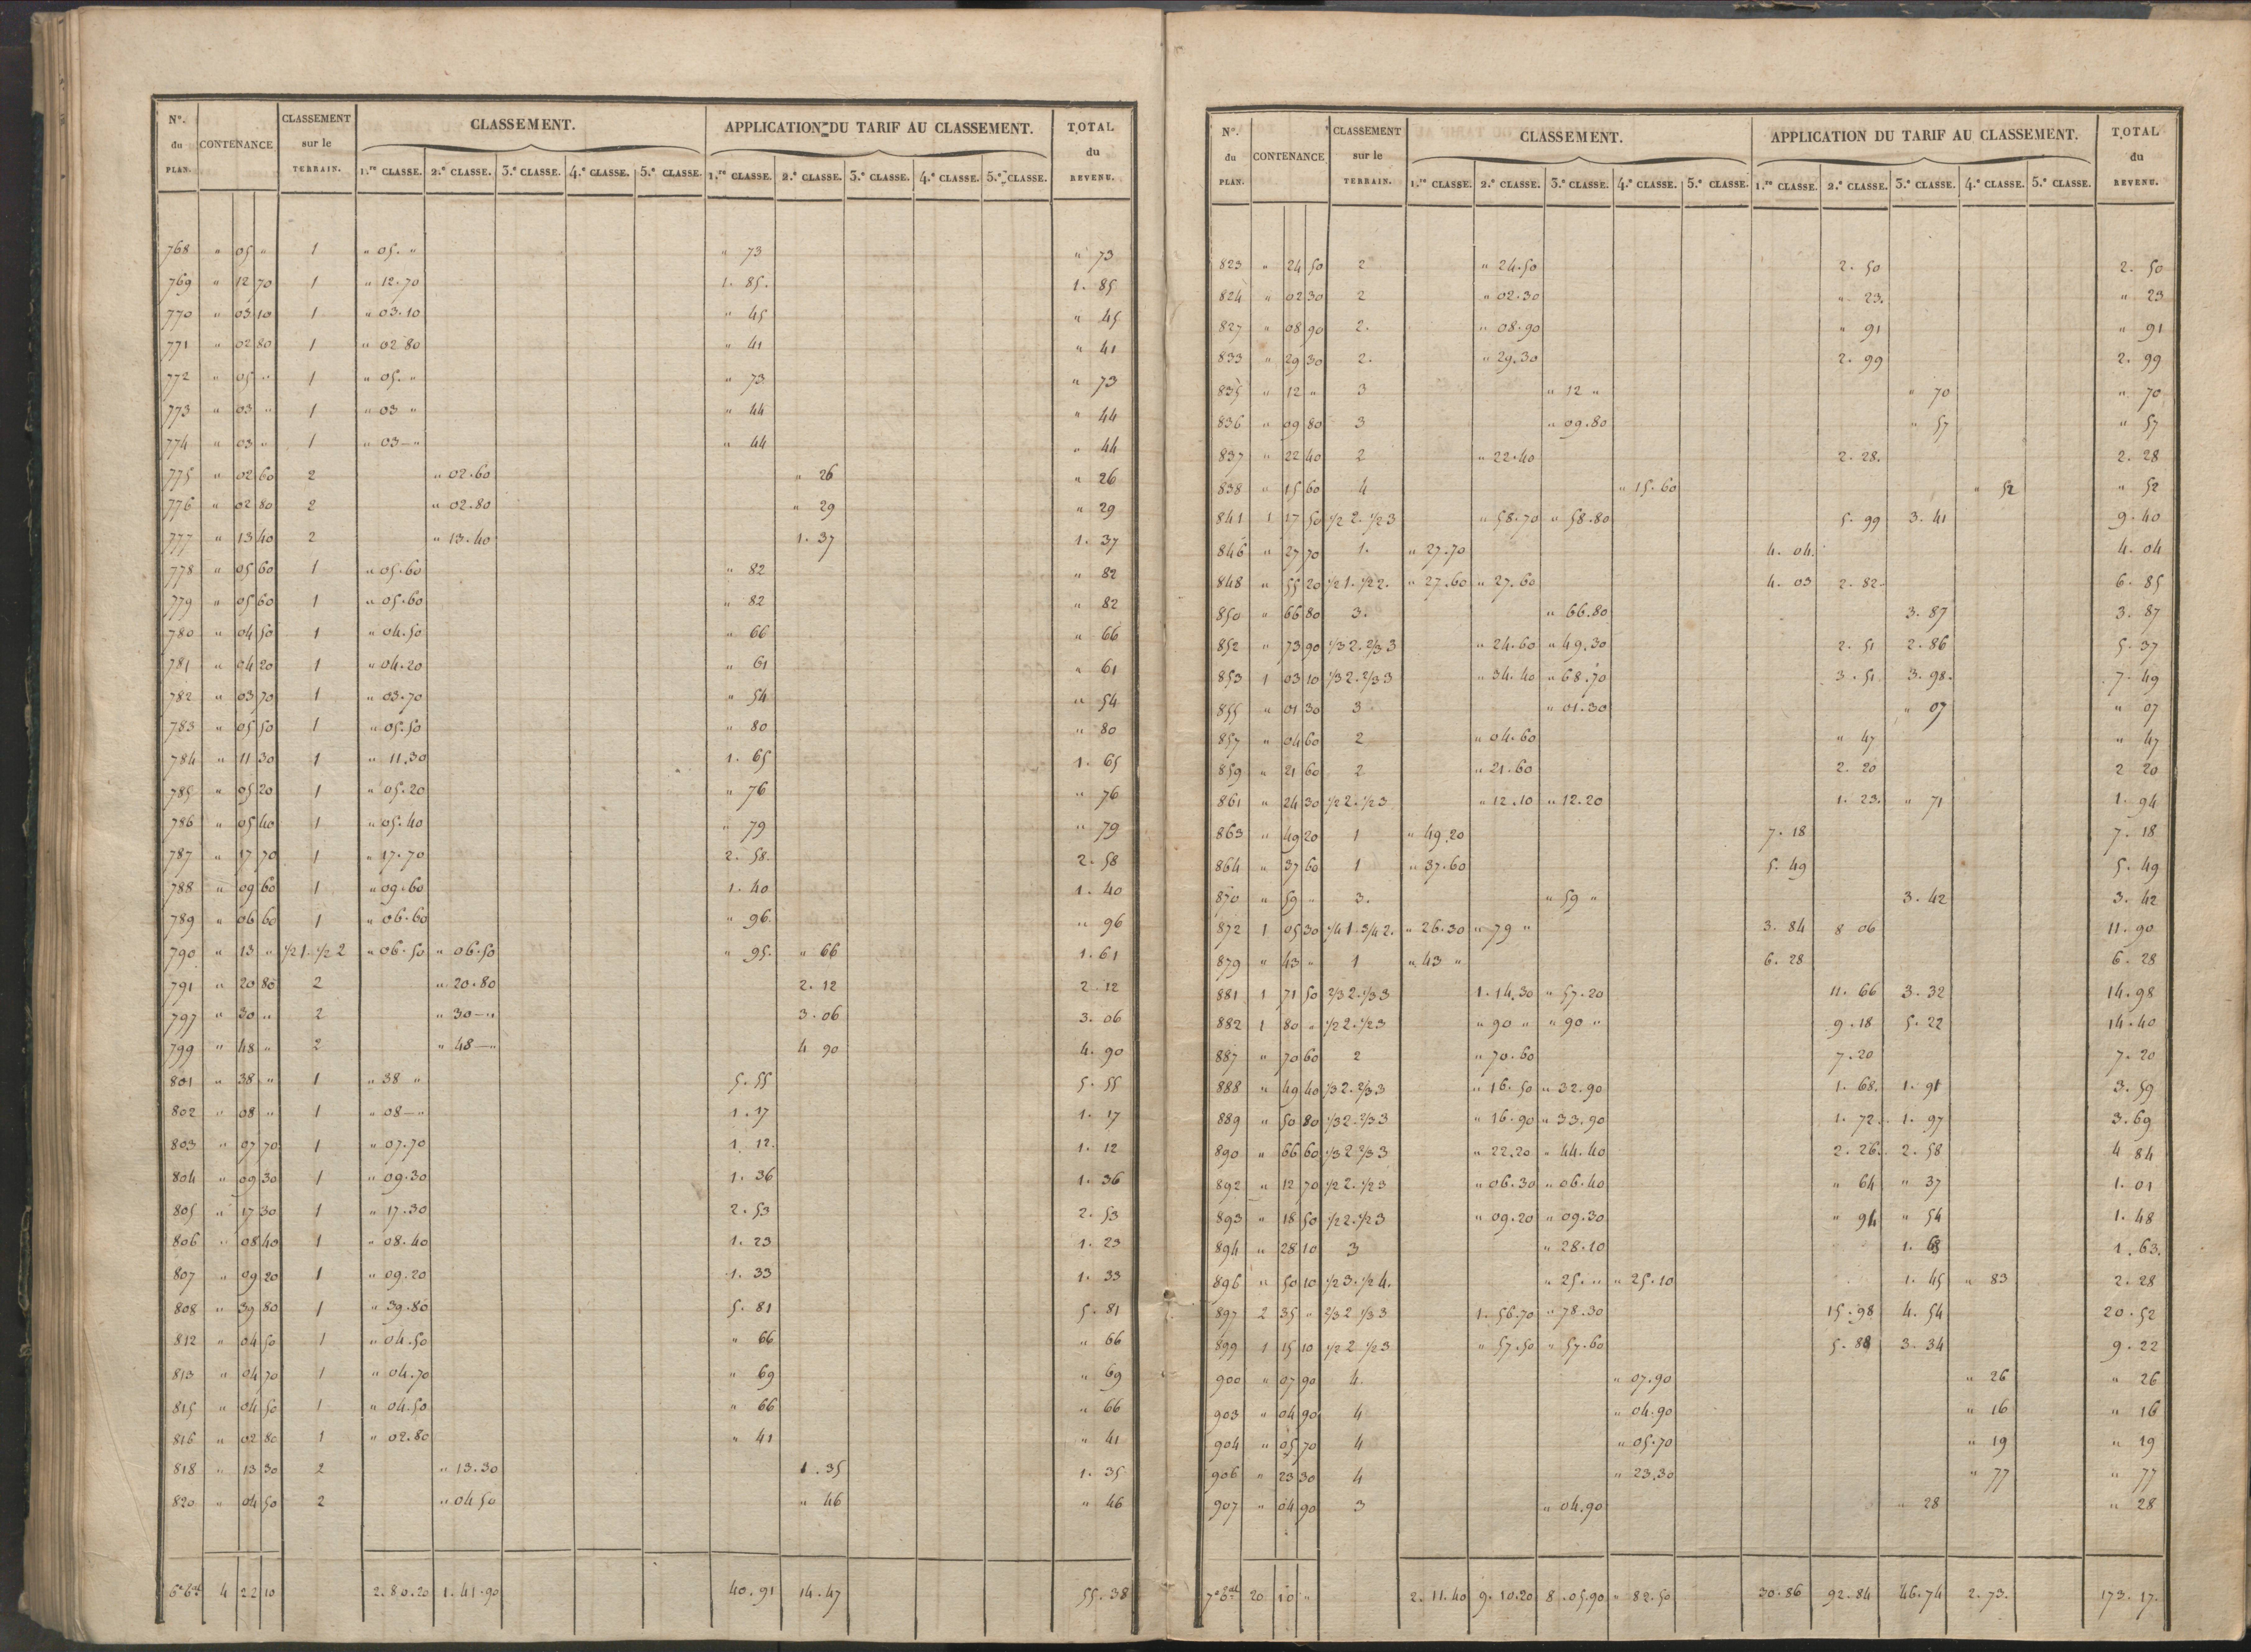 N°. du PLAN. CONTENANCE CLASSEMENT sur le TERRAIN. CLASSEMENT. APPLICATION DU TARIF AU CLASSEMENT. TOTAL du REVENU.
1.re CLASSE. 2.e CLASSE. 3.e CLASSE. 4.e CLASSE. 5.e CLASSE. 1.re CLASSE. 2.e CLASSE. 3.e CLASSE. 4.e CLASSE. 5.e CLASSE.
768 " 05 " 1 " 05. " " 73 " 73
769 " 12 70 1 " 12.70 1. 85. 1. 85
770 " 03 10 1 " 03.10 " 45 " 45
771 " 02 80 1 " 02 80 " 41 " 41
772 " 05 " 1 " 05. " " 73 " 73
773 " 03 " 1 " 03 " " 44 " 44
774 " 03 " 1 " 03—" " 44 " 44
775 " 02 60 2 " 02.60 " 26 " 26
776 " 02 80 2 " 02.80 " 29 " 29
777 " 13 40 2 " 13.40 1. 37 1. 37
778 " 05 60 1 " 05.60 " 82 " 82
779 " 05 60 1 " 05.60 " 82 " 82
780 " 04 50 1 " 04.50 " 66 " 66
781 " 04 20 1 " 04.20 " 61 " 61
782 " 03 70 1 " 03.70 " 54 " 54
783 " 05 50 1 " 05.50 " 80 " 80
784 " 11 30 1 " 11.30 1. 65 1. 65
785 " 05 20 1 " 05.20 " 76 " 76
786 " 05 40 1 " 05.40 " 79 " 79
787 " 17 70 1 " 17.70 2. 58. 2. 58
788 " 09 60 1 " 09.60 1. 40 1. 40
789 " 06 60 1 " 06.60 " 96. " 96
790 " 13 " 1/2 1. 1/2 2 " 06.50 " 06.50 " 95. " 66 1. 61
791 " 20 80 2 " 20.80 2. 12 2. 12
797 " 30 " 2 " 30—" 3. 06 3. 06
799 " 48 " 2 " 48—" 4 90 4. 90
801 " 38 " 1 " 38 " 5. 55 5. 55
802 " 08 " 1 " 08—" 1. 17 1. 17
803 " 07 70 1 " 07.70 1. 12. 1. 12
804 " 09 30 1 " 09.30 1. 36 1. 36
805 " 17 30 1 " 17.30 2. 53 2. 53
806 " 08 40 1 " 08.40 1. 23 1. 23
807 " 09 20 1 " 09.20 1. 33 1. 33
808 " 39 80 1 " 39.80 5. 81 5. 81
812 " 04 50 1 " 04.50 " 66 " 66
813 " 04 70 1 " 04.70 " 69 " 69
815 " 04 50 1 " 04.50 " 66 " 66
816 " 02 80 1 " 02.80 " 41 " 41
818 " 13 30 2 " 13.30 1. 35 1. 35
820 " 04 50 2 " 04 50 " 46 " 46
4 22 10 2. 80. 20 1. 41. 90 40. 91 14. 47 55. 38
N°. du PLAN. CONTENANCE CLASSEMENT sur le TERRAIN. CLASSEMENT. APPLICATION DU TARIF AU CLASSEMENT. TOTAL du REVENU.
1.re CLASSE. 2.e CLASSE. 3.e CLASSE. 4.e CLASSE. 5.e CLASSE. 1.re CLASSE. 2.e CLASSE. 3.e CLASSE. 4.e CLASSE. 5.e CLASSE.
823 " 24 50 2 " 24.50 2. 50 2. 50
824 " 02 30 2 " 02.30 " 23. " 23
827 " 08 90 2. " 08.90 " 91 " 91
833 " 29 30 2. " 29.30 2. 99 2. 99
835 " 12 " 3 " 12 " " 70 " 70
836 " 09 80 3 " 09.80 " 57 " 57
837 " 22 40 2 " 22.40 2. 28. 2. 28
838 " 15 60 4 " 15.60 " 52 " 52
841 1 17 50 1/2 2. 1/2 3 " 58.70 " 58.80 5. 99 3. 41 9. 40
846 " 27 70 1. " 27.70 4. 04. 4. 04
848 " 55 20 1/2 1. 1/2 2. " 27.60 " 27.60 4. 03 2. 82. 6. 85
850 " 66 80 3. " 66.80 3. 87 3. 87
852 " 73 90 1/3 2. 2/3 3 " 24.60 " 49.30 2. 51 2. 86 5. 37
853 1 03 10 1/3 2. 2/3 3 " 34. 40 " 68.70 3. 51 3. 98. 7. 49
855 " 01 30 3 " 01.30 " 07 " 07
857 " 04 60 2 " 04.60 " 47 " 47
859 " 21 60 2 " 21.60 2. 20 2 20
861 " 24 30 1/2 2. 1/2 3 " 12.10 " 12.20 1. 23. " 71 1. 94
863 " 49 20 1 " 49.20 7. 18 7. 18
864 " 37 60 1 " 37.60 5. 49 5. 49
870 " 59 " 3. " 59 " 3. 42 3. 42
872 1 05 30 1/4 1 3/4 2. " 26.30 " 79 " 3. 84 8 06 11. 90
879 " 43 " 1 " 43 " 6. 28 6. 28
881 1 71 50 2/3 2. 1/3 3 1. 14. 30 " 57.20 11. 66 3. 32 14. 98
882 1 80 " 1/2 2. 1/2 3 " 90 " " 90 " 9. 18 5. 22 14. 40
887 " 70 60 2 " 70.60 7. 20 7. 20
888 " 49 40 1/3 2. 2/3 3 " 16. 50 " 32.90 1. 68. 1. 91 3. 59
889 " 50 80 1/3 2. 2/3 3 " 16.90 " 33.90 1. 72. 1. 97 3. 69
890 " 66 60 1/3 2 2/3 3 " 22.20 " 44.40 2. 26. 2. 58 4 84
892 " 12 70 1/2 2. 1/2 3 " 06.30 " 06.40 " 64 " 37 1. 01
893 " 18 50 1/2 2. 1/2 3 " 09.20 " 09.30 " 94 " 54 1. 48
894 " 28 10 3 " 28.10 1. 63 1. 63.
896 " 50 10 1/2 3. 1/2 4. " 25. " " 25.10 1. 45 " 83 2. 28
897 2 35 " 2/3 2 1/3 3 1. 56.70 " 78.30 15. 98 4. 54 20. 52
899 1 15 10 1/2 2 1/2 3 " 57.50 " 57.60 5. 88 3. 34 9. 22
900 " 07 90 4. " 07.90 " 26 " 26
903 " 04 90 4 " 04.90 " 16 " 16
904 " 05 70 4 " 05.70 " 19 " 19
906 " 23 30 4 " 23.30 " 77 " 77
907 " 04 90 3 " 04.90 " 28 " 28
20 10 " 2. 11. 40 9. 10.20 8. 05.90 " 82.50 30. 86 92. 84 46. 74 2. 73. 173. 17.